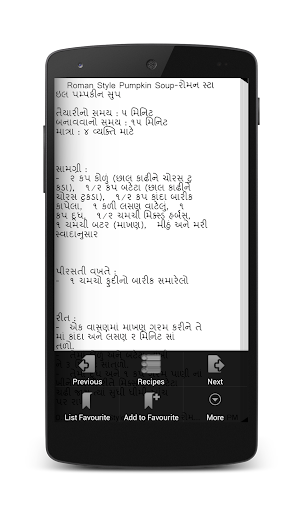 Roman Style Pumpkin Soup-રોમન સ્ટા
ઇલ પમ્પકીન સુપ
તૈયારીનો સમય : ૫ મિનિટ
બનાવવાનો સમય : ૧૫ મિનિટ
માત્રા : ૪ વ્યક્તિ માટે
સામગ્રી :
- ૨ કપ કોળુ (છાલ કાઢીને ચોરસ ટુ
કડા), ૧/૨ કપ બટેટા (છાલ કાઢીને
ચોરસ ટુકડા), ૧/૨ કપ કાંદા બારીક
કાપેલા, ૧ કળી લસણ વાટેલુ, ૧
કપ દૂધ, ૧/૨ ચમચી મિક્સ્ડ હર્બસ,
૧ ચમચી બટર (માખણ), મીઠુ અને મરી
સ્વાદાનુસાર
પીરસતી વખતે :
- ૧ ચમચો ફુદીનો બારીક સમારેલો
રીત :
- એક વાસણમાં માખણ ગરમ કરીને તે
માં કાંદા અને લસણ ૨ મિનિટ સાં
તળો.
Previous
Recipes
Next
List Favourite
Add to Favourite
More